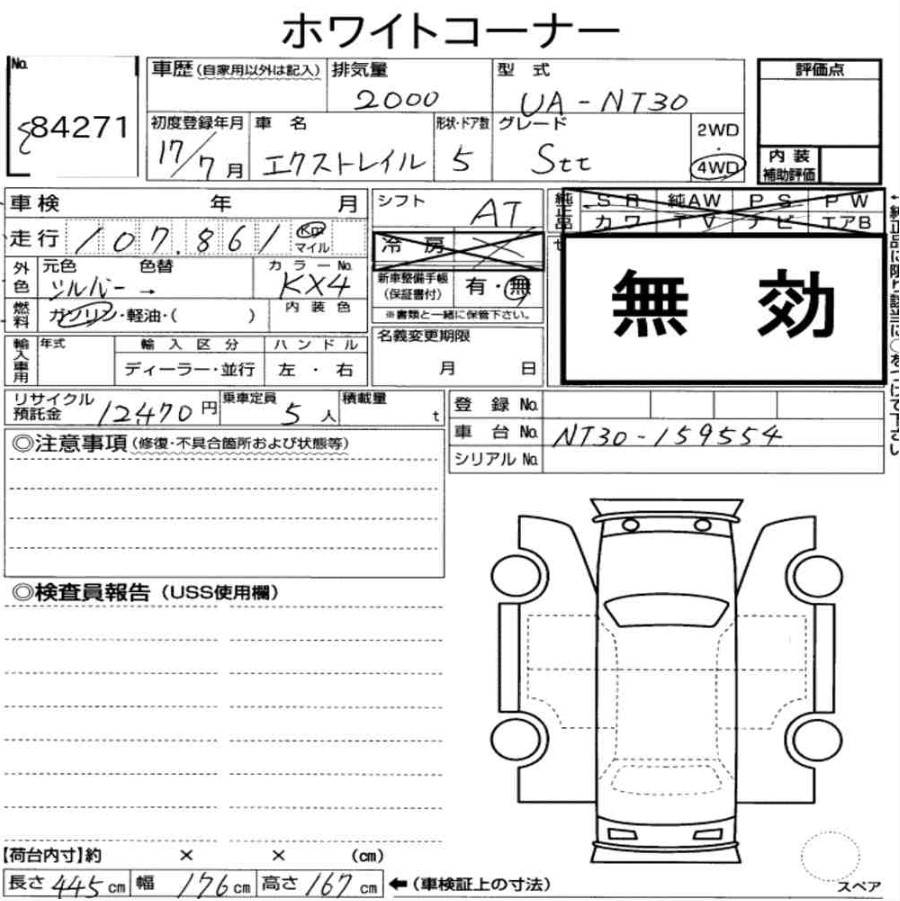 ホワイトコーナー
No.
84271
車歴(自家用以外は記入)
排気量
2000
型式
UA-NT30
評価点
初度登録年月
17/7月
車名
エクストレイル
形状・ドア数
5
グレード
Stt
2WD
・
4WD
内装
補助評価
車検 年 月
走行 107,861 Km
マイル
外色
元色 色替
シルバー →
カラーNo.
KX4
燃料
ガソリン・軽油・( )
内装色
輸入車用
年式
輸入区分
ディーラー・並行
ハンドル
左・右
シフト
AT
冷房
新車整備手帳
(保証書付)
有・無
※書類と一緒に保管下さい。
名義変更期限
月 日
純正品
SR 純AW PS PW
カワ TV ナビ エアB
無効
←純正品に限り該当に○をつけて下さい
リサイクル
預託金
12470円
乗車定員
5人
積載量
t
登録No.
車台No. NT30-159554
シリアルNo.
◎注意事項(修復・不具合箇所および状態等)
◎検査員報告(USS使用欄)
【荷台内寸】約 × × (cm)
長さ 445cm 幅 176cm 高さ 167cm ←(車検証上の寸法)
スペア